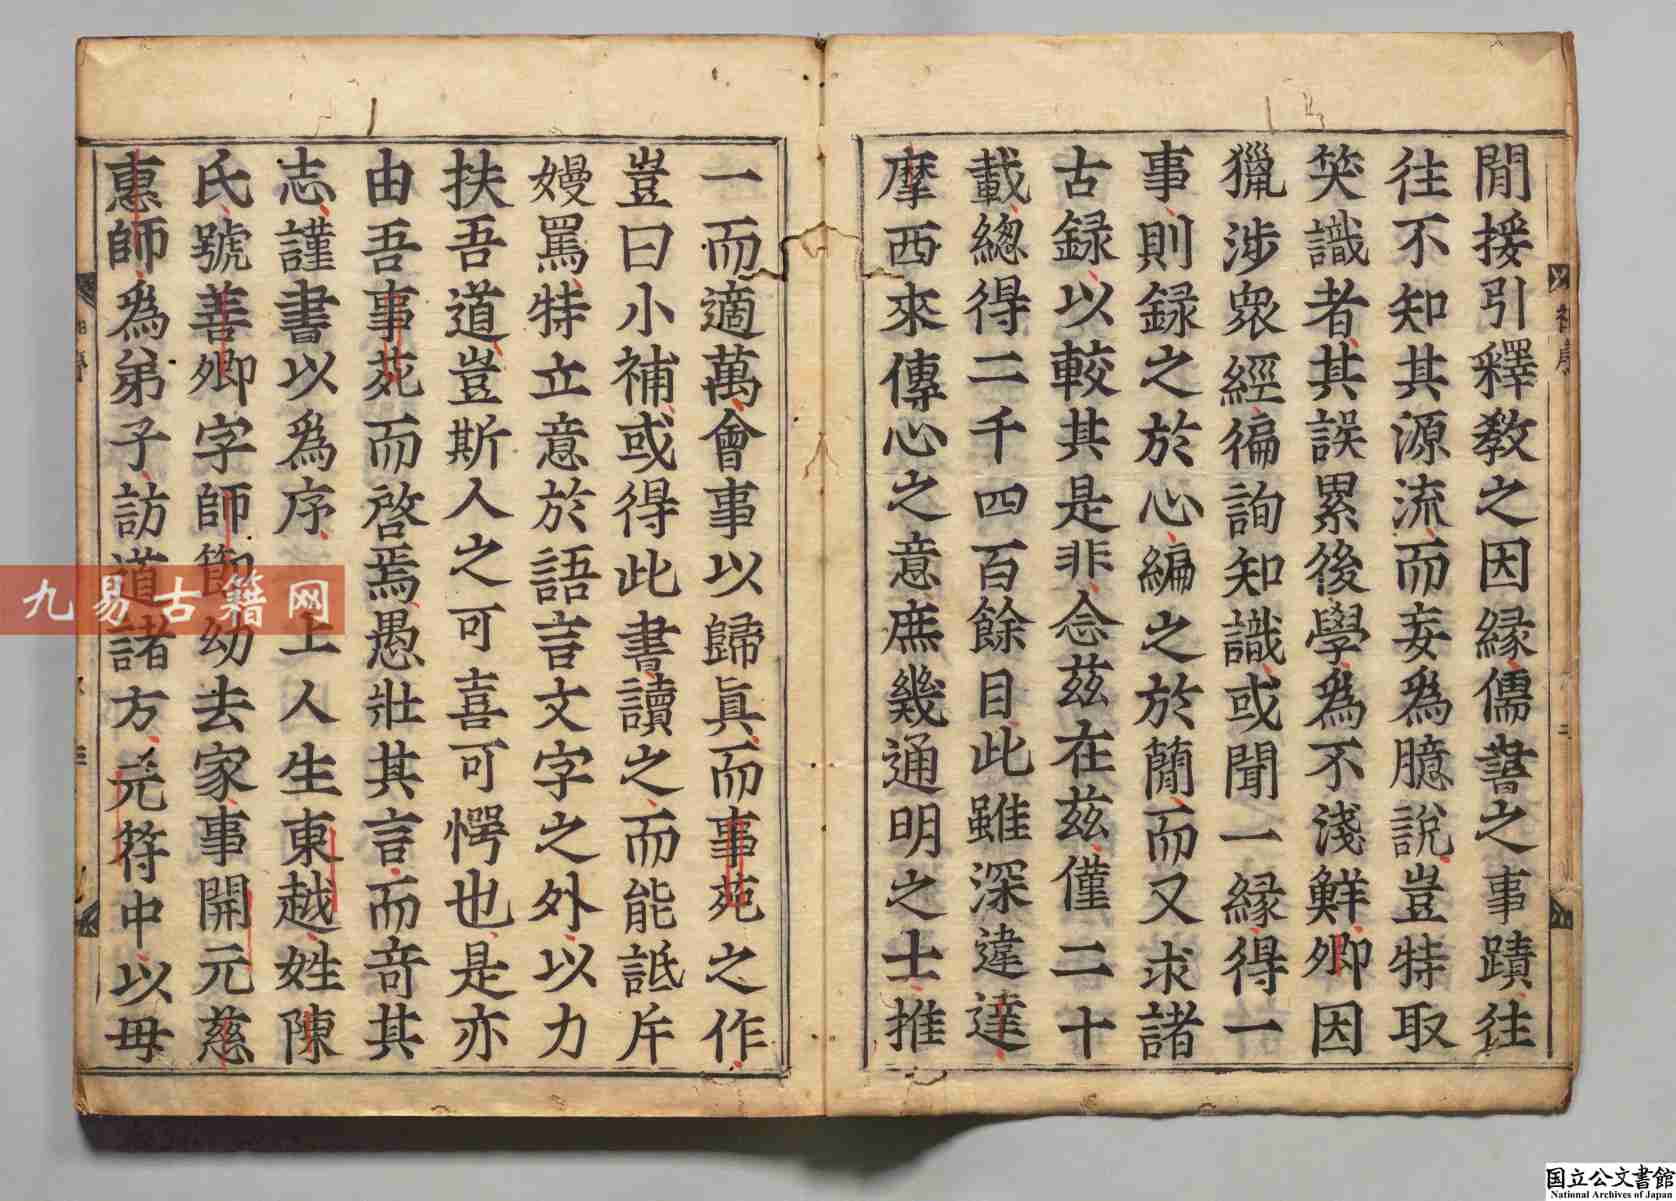 閒援引釋教之因縁儒書之事蹟往
往不知其源流而妄爲臆説豈特取
笑識者其誤累後學爲不淺鮮卿因
獵涉衆經徧詢知識或聞一縁得一
事則録之於心編之於簡而又求諸
古録以較其是非念茲在茲僅二十
載總得二千四百餘目此雖深違達
摩西來傳心之意庶幾通明之士推
一而適萬會事以歸眞而事苑之作
豈曰小補或得此書讀之而能詆斥
嫚罵特立意於語言文字之外以力
扶吾道豈斯人之可喜可愕也是亦
由吾事苑而啓焉愚壯其言而竒其
志謹書以爲序上人生東越姓陳
氏號善卿字師節幼去家事開元慈
惠師爲弟子訪道諸方元符中以母
九易古籍网
国立公文書館
National Archives of Japan